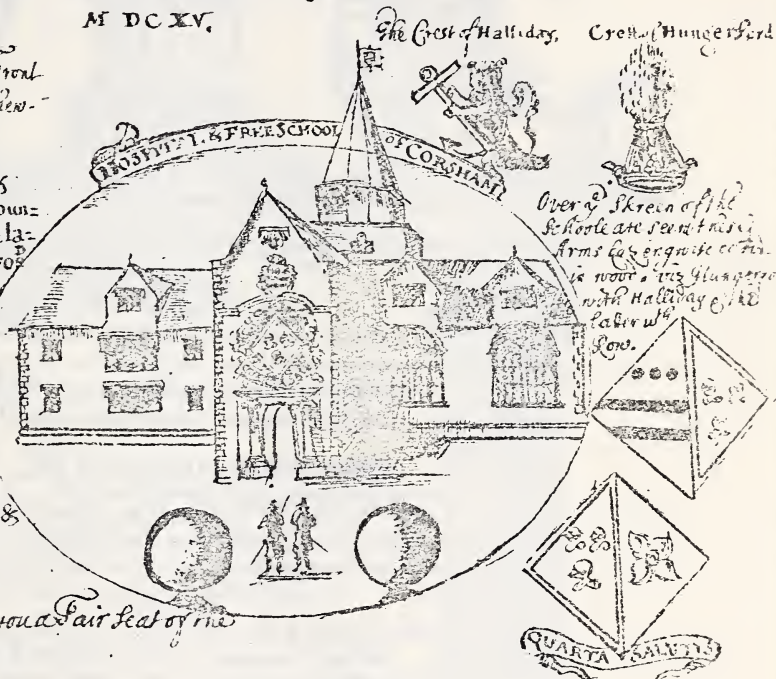 M DC XV.
The Crest of Halliday.
Crest of Hungerford
ront
New-
HOSPITAL & FREE SCHOOL of CORSHAM
Over yͤ Skreen of the
Schoole are seen these
Arms
in wood,
with Halliday & the
later wth
Row.
oun=
la=
for
&
you a Fair Seat of the
QUARTA SALUTIS